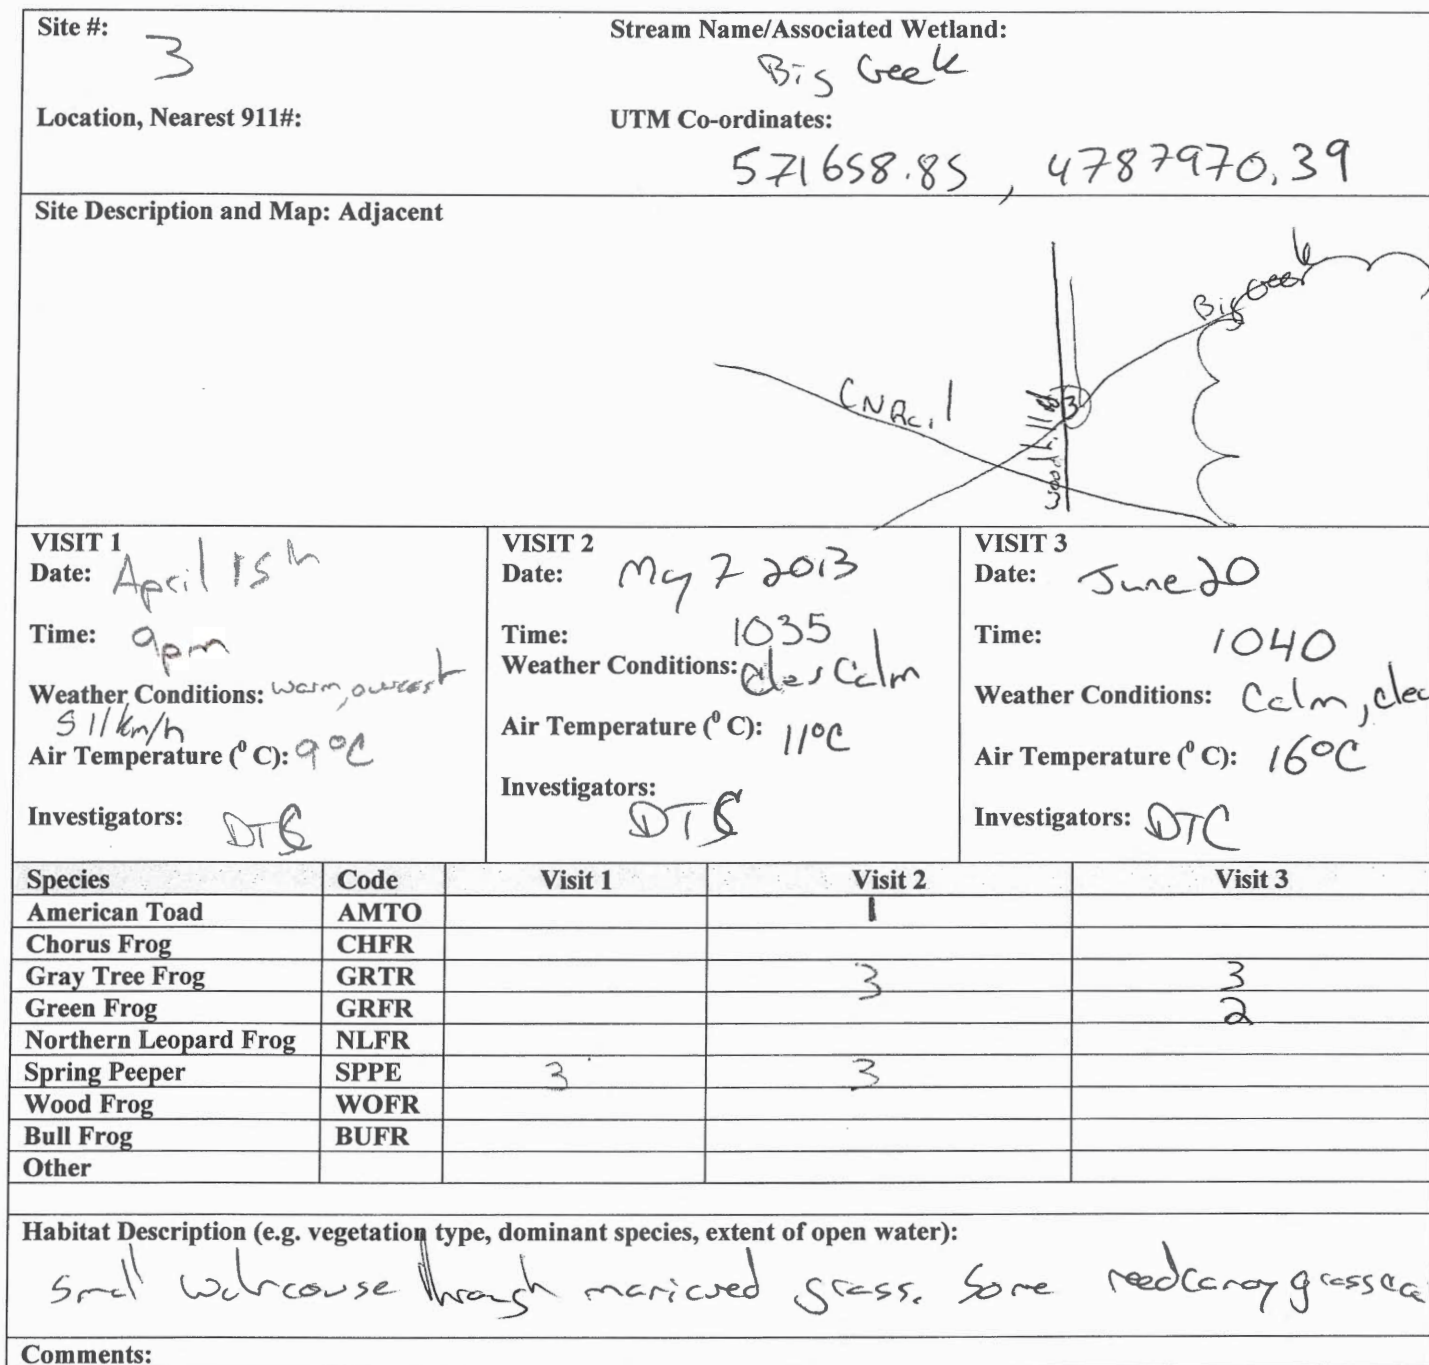 Site #: 3
Stream Name/Associated Wetland: Big Creek
Location, Nearest 911#:
UTM Co-ordinates: 571658.85, 4787970.39
Site Description and Map: Adjacent
Big Creek
CNRail
3
VISIT 1
Date: April 15th
Time: 9pm
Weather Conditions: warm, overcast
11km/h
Air Temperature (⁰ C): 9 °C
Investigators:
VISIT 2
Date: May 7 2013
Time: 1035
Weather Conditions: Calm
Air Temperature (⁰ C): 11°C
Investigators:
VISIT 3
Date: June 20
Time: 1040
Weather Conditions: Calm, clea
Air Temperature (⁰ C): 16°C
Investigators: DTC
Species Code Visit 1 Visit 2 Visit 3
American Toad AMTO 1
Chorus Frog CHFR
Gray Tree Frog GRTR 3 3
Green Frog GRFR 2
Northern Leopard Frog NLFR
Spring Peeper SPPE 3 3
Wood Frog WOFR
Bull Frog BUFR
Other
Habitat Description (e.g. vegetation type, dominant species, extent of open water):
Small watercourse through manicured grass. Some reed canary grass
Comments: